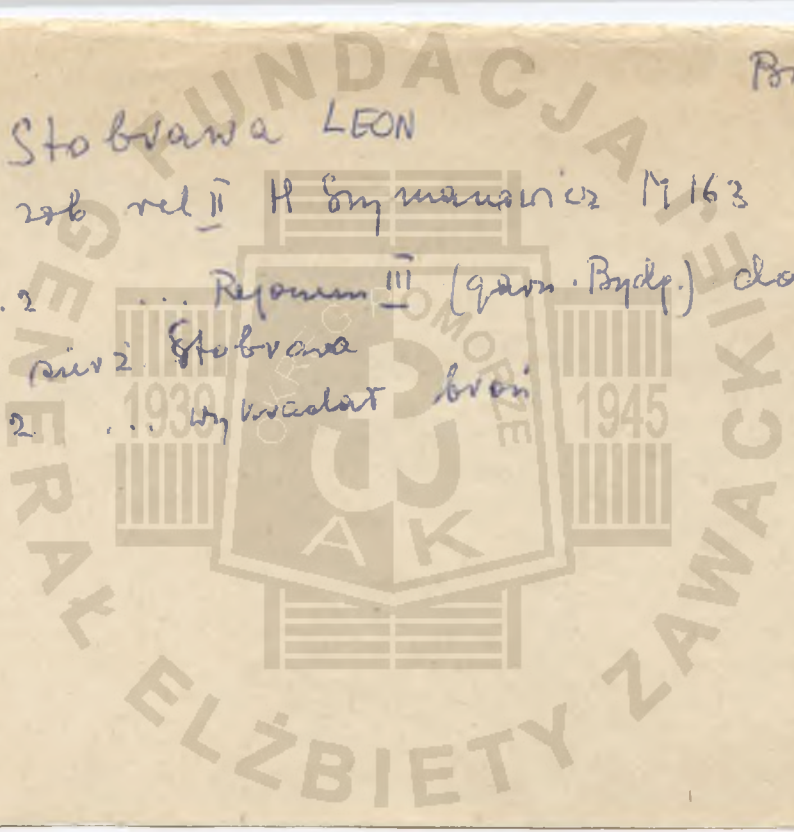 Stobrawa LEON
zob rel II H Szymanowicz M 163
.2 ... Rejonem III (garn. Bydg.) do
sierż Stobrawa
2 ... wykradał broń
FUNDACJA GENERAŁ ELŻBIETY ZAWACKIEJ
OKRĘG POMORZE
1939 1945
AK